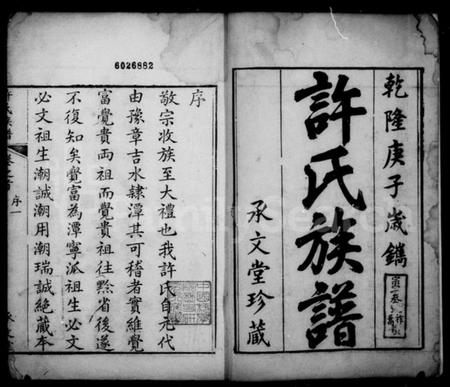 乾隆庚子歲鐫
許氏族譜
承文堂珍藏
6026882
序
敬宗收族至大禮也我許氏自元代
由豫章吉水隸潭其可稽者實維覺
富覺貴兩祖而覺貴祖往黔省後遂
不復知矣覺富為潭寧派祖生必文
必文祖生潮誠潮用潮瑞誠絶藏本
許氏族譜 卷之首 序一